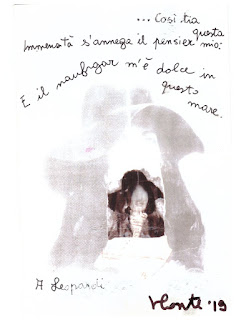 ... Così tra
questa
Immensità s'annega il pensier mio:
E il naufragar m'è dolce in
questo
mare.
A Leopardi
'19